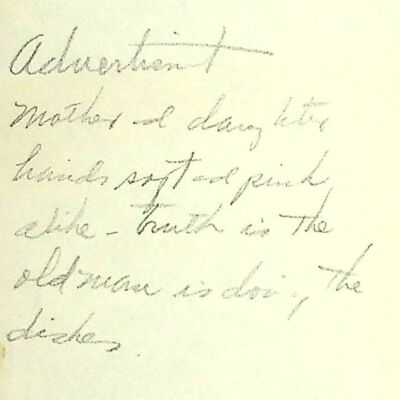 Advertisment
Mother and daughter
hands soft and pink
alike - Truth is the
old man is doing the
dishes.